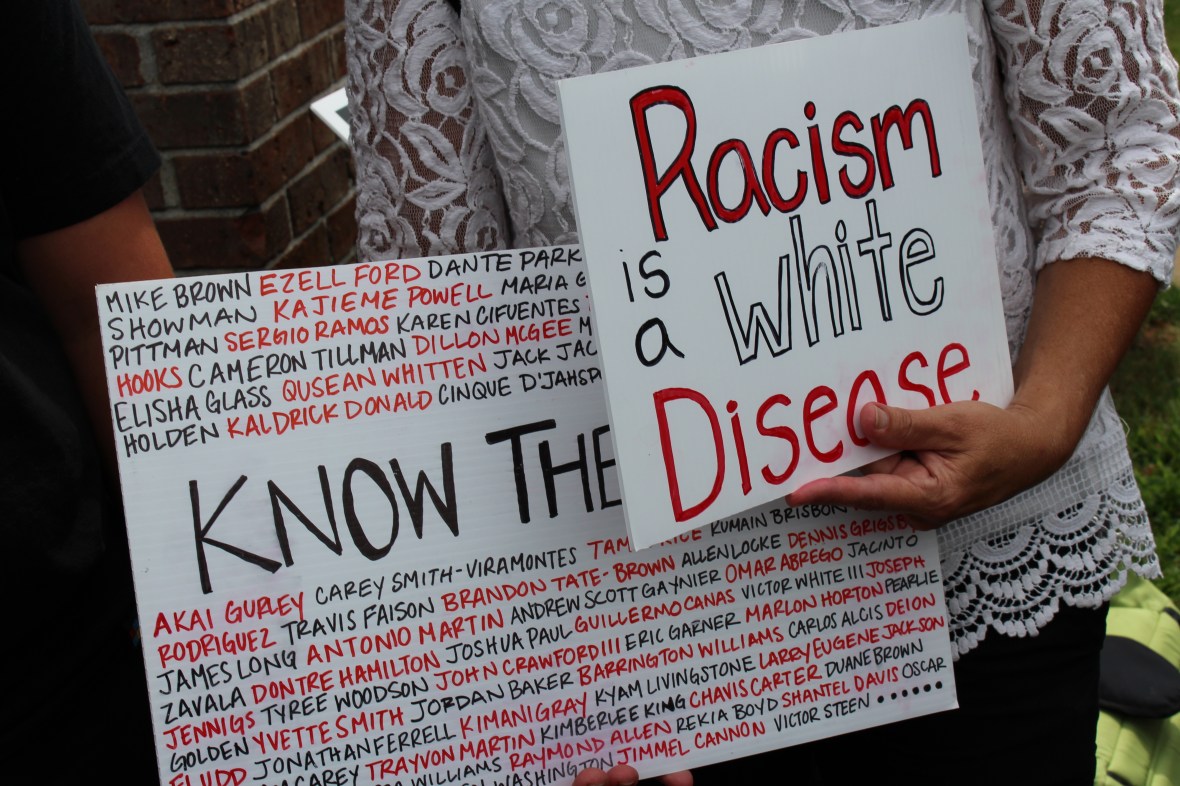 Racism
is
a white
Disease
MIKE BROWN EZELL FORD DANTE PARK
SHOWMAN KAJIEME POWELL MARIA G
PITTMAN SERGIO RAMOS KAREN CIFUENTES
HOOKS CAMERON TILLMAN DILLON MCGEE M
ELISHA GLASS QUSEAN WHITTEN JACK JAC
HOLDEN KALDRICK DONALD CINQUE D'JAHSP
KNOW THE
AKAI GURLEY CAREY SMITH-VIRAMONTES TAM RICE RUMAIN BRISBON
RODRIGUEZ TRAVIS FAISON BRANDON TATE-BROWN ALLEN LOCKE DENNIS GRIGSBY
JAMES LONG ANTONIO MARTIN ANDREW SCOTT GAYNIER OMAR ABREGO JACINTO
ZAVALA DONTRE HAMILTON JOSHUA PAUL GUILLERMO CANAS VICTOR WHITE III JOSEPH
JENNIGS TYREE WOODSON JOHN CRAWFORD III ERIC GARNER MARLON HORTON PEARLIE
GOLDEN YVETTE SMITH JORDAN BAKER BARRINGTON WILLIAMS CARLOS ALCIS DEION
FLUDD JONATHAN FERRELL KIMANI GRAY KYAM LIVINGSTONE LARRY EUGENE JACKSON
CAREY TRAYVON MARTIN KIMBERLEE KING CHAVIS CARTER DUANE BROWN
WILLIAMS RAYMOND ALLEN REKIA BOYD SHANTEL DAVIS OSCAR
WASHINGTON JIMMEL CANNON VICTOR STEEN ••••••